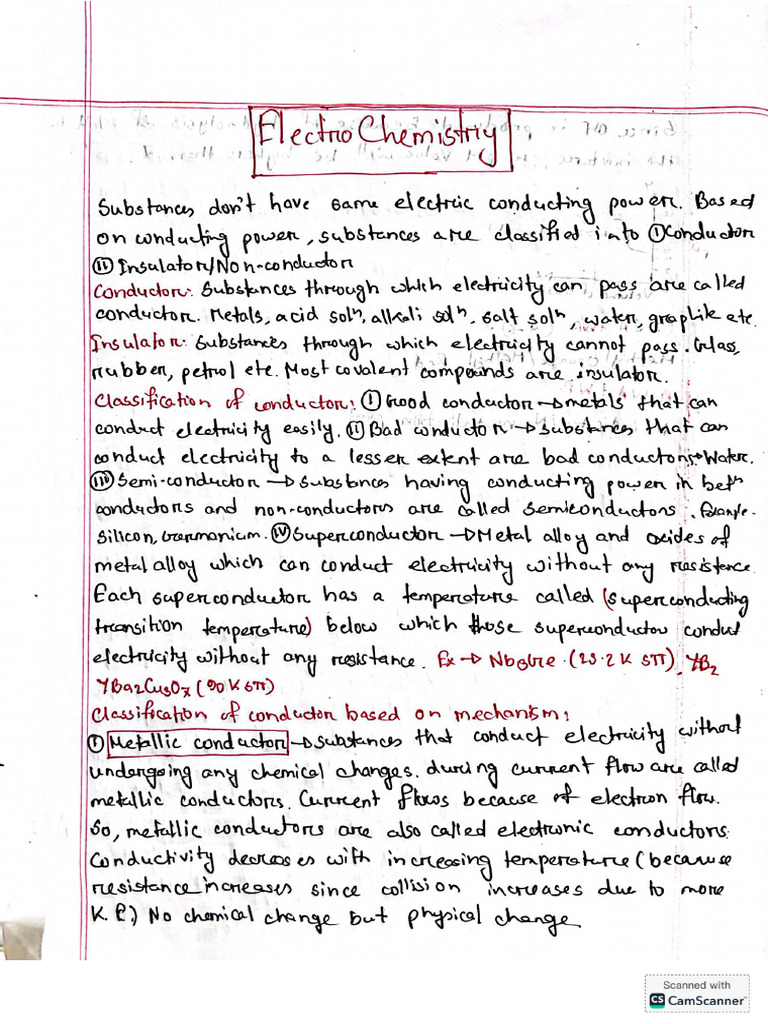 ElectroChemistriy
Substances don't have same electric conducting power. Based
on conducting power, substances are classified into ① Conductor
② Insulator/Non-conductor
Conductor: Substances through which electricity can pass are called
conductor. Metals, acid solⁿ, alkali solⁿ, salt solⁿ, water, graphite etc.
Insulator: Substances through which electricity cannot pass. Glass,
rubber, petrol etc. Most covalent compounds are insulator.
Classification of conductor: ① Good conductor → metals that can
conduct electricity easily. ② Bad conductor → Substances that can
conduct electricity to a lesser extent are bad conductors → Water.
③ Semi-conductor → Substances having conducting power in betⁿ
conductors and non-conductors are called semiconductors. Example-
Silicon, Germanium. ④ Superconductor → Metal alloy and oxides of
metal alloy which can conduct electricity without any resistance.
Each superconductor has a temperature called (superconducting
transition temperature) below which those superconductor conduct
electricity without any resistance. Ex → (23.2 K STT),
YBa2Cu3O7 (90 K STT)
Classification of conductor based on mechanism:
① Metallic conductor → substances that conduct electricity without
undergoing any chemical changes. during current flow are called
metallic conductors. Current flows because of electron flow.
So, metallic conductors are also called electronic conductors.
Conductivity decreases with increasing temperature (because
resistance increases since collision increases due to more
K.E) No chemical change but physical change
Scanned with
CS CamScanner